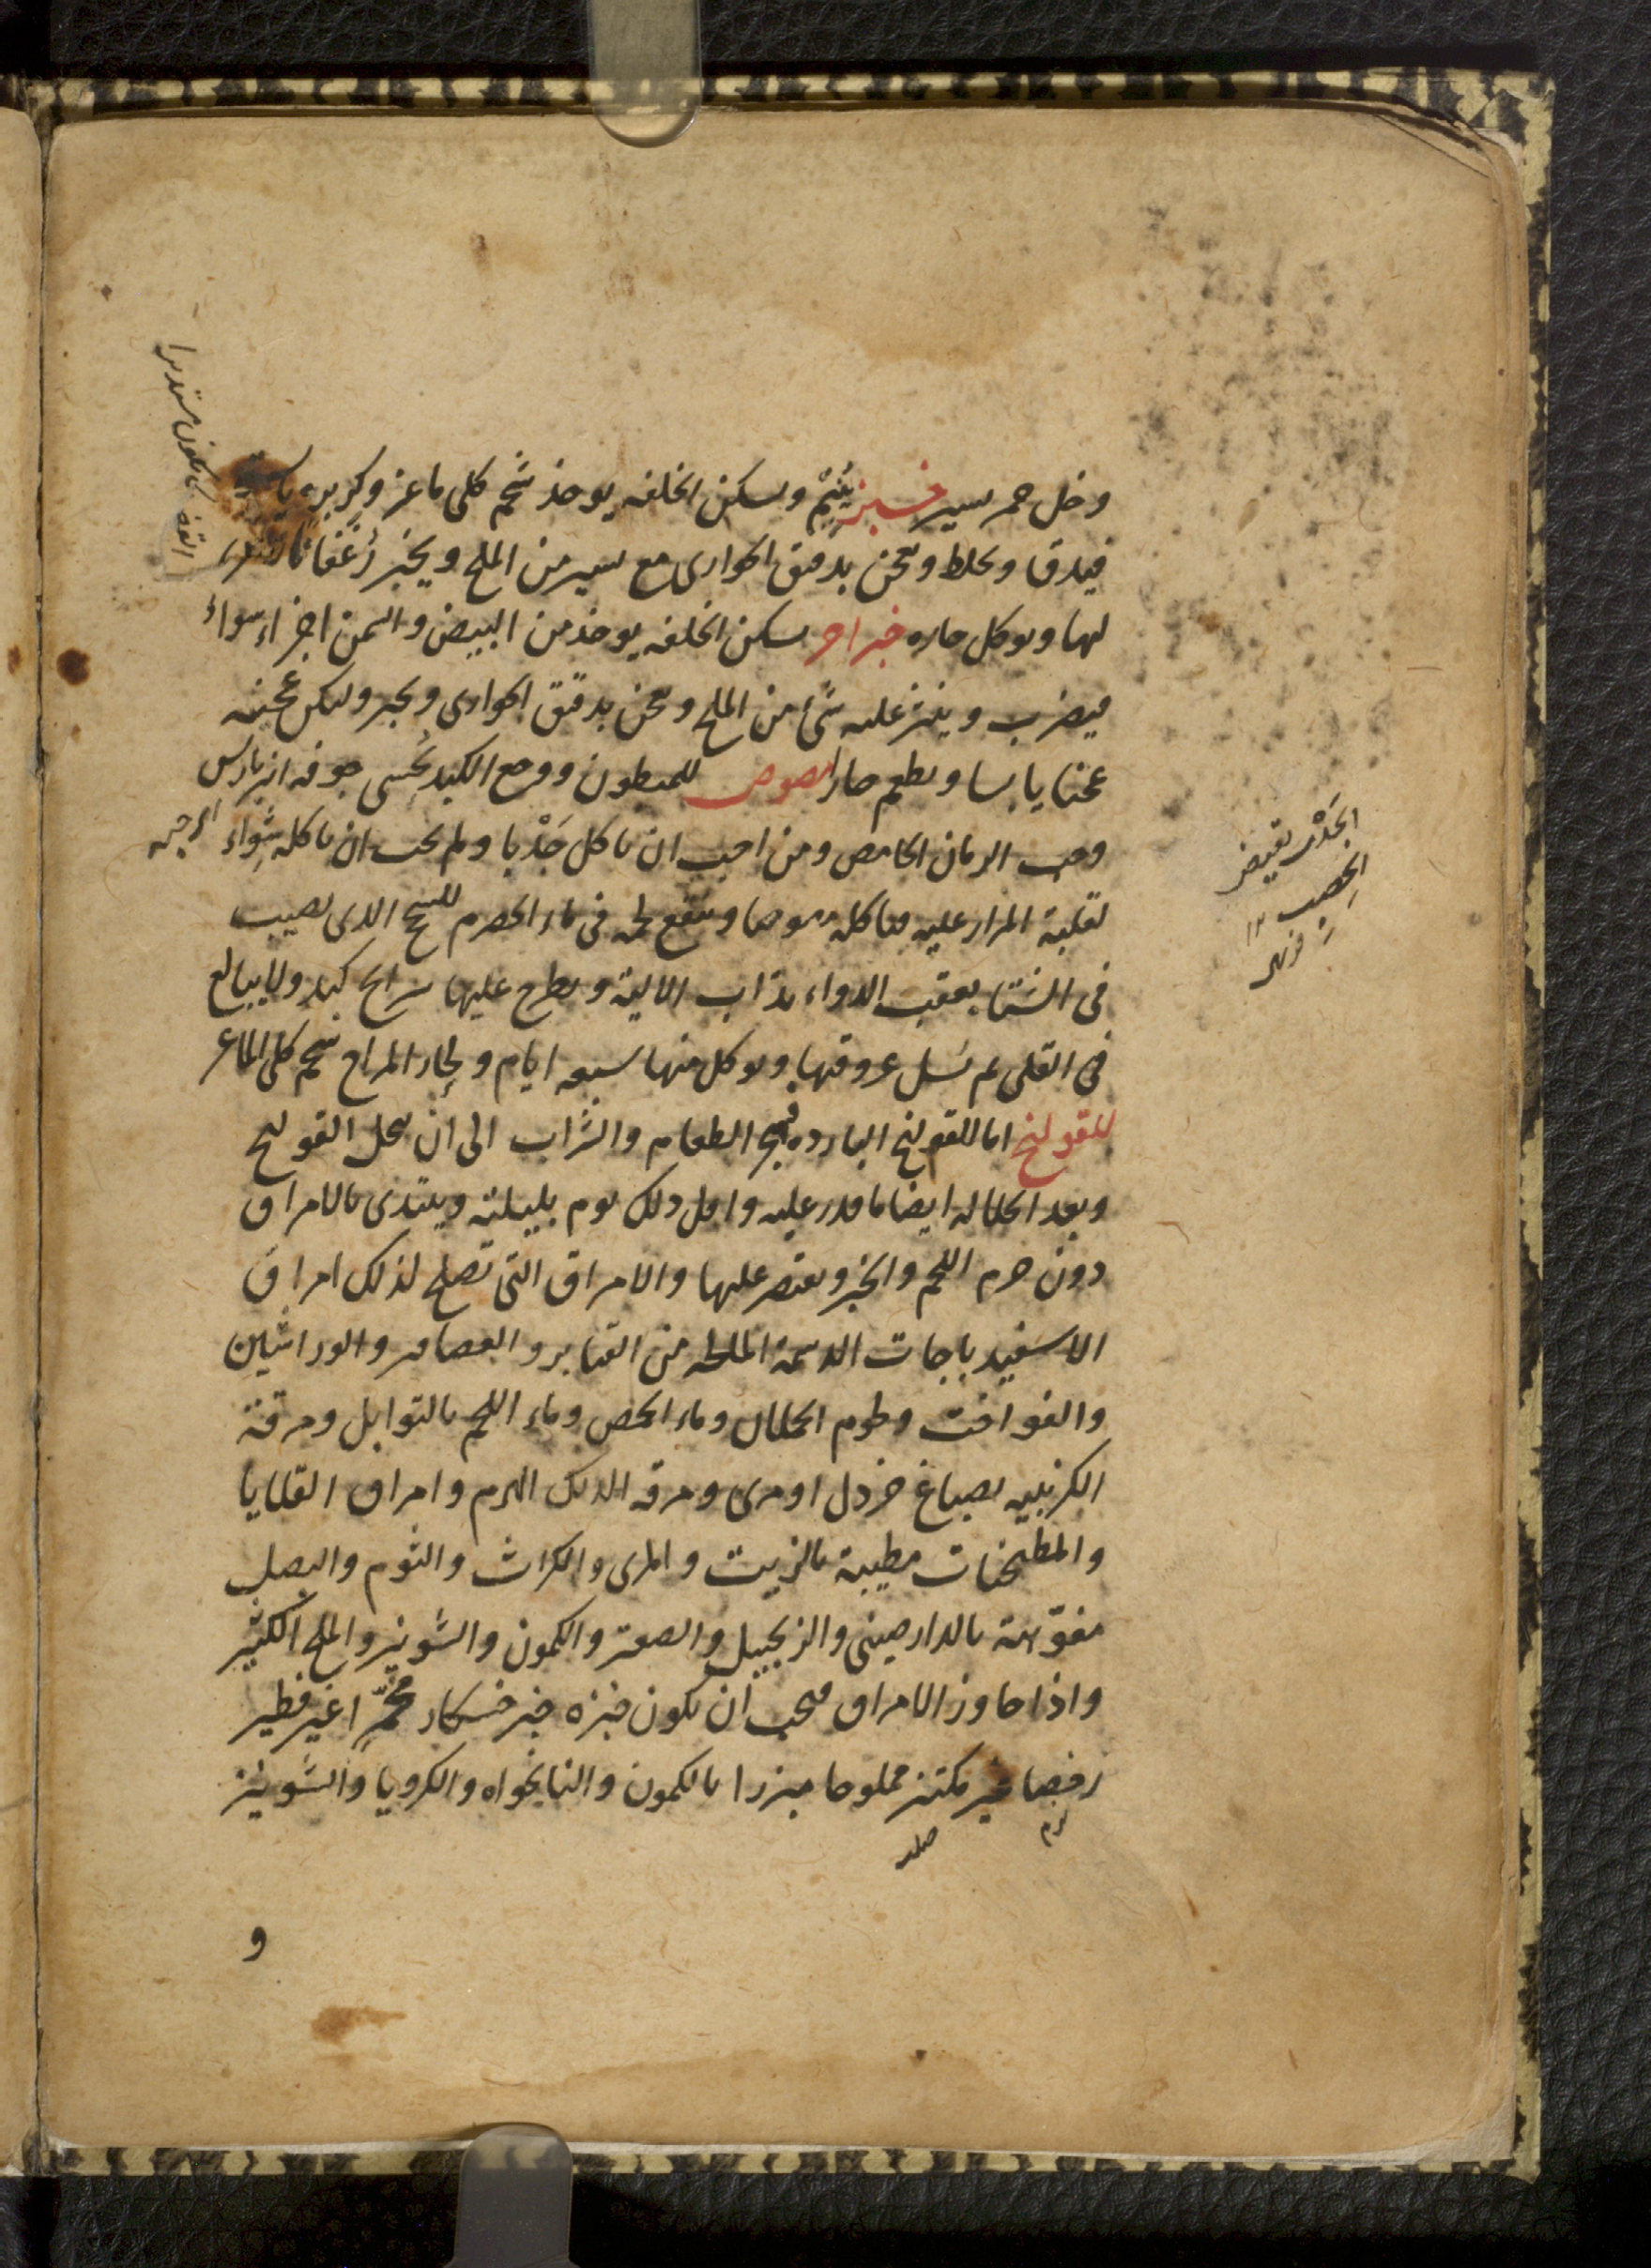 وخل خمر يسير خبز يتيم ويسكن الخلفه يوخذ شحم كلى ماعز وكزبره يابسة
فيدق ويخلط ويعجن بدقيق الحوارى مع يسير من الملح ويخبز رُغفانا
لها ويوكل حاره خبز اخر يسكن الخلفه يوخذ من البيض والسمن اجزاء سواء
فيضرب وينثر عليه شئ من الملح ويعجن بدقيق الحوارى ويخبز وليكن عجينه
عجنا يابسا ويطعم حارا مصوص للمبطون ووجع الكبد يُحشى جوفه انبرباريس
وحب الرمان الحامض ومن احب ان ياكل جَدْيا ولم يحب ان ياكله شِواء
لغلبة المرار عليه فياكله مصوصا وينقع لحمه فى ماء الحصرم للسحج الذى يصيب
فى الشتا بعقب الدواء يذاب الالية ويطرح عليها شرايح كبد ولا يبالغ
فى القلى ثم تسل عروقها ويوكل منها سبعه ايام ولحار المزاج شحم كلى الماعز
للقولنج اما للقولنج البارده فيهجر الطعام والشراب الى ان يحل القولنج
وبعد انحلاله ايضا ما قدر عليه واقل ذلك يوم بليلته ويبتدى بالامراق
دون جرم اللحم والخبز ويقتصر عليها والامراق التى تصلح لذلك امراق
الاسفيدباجات الدسمة المملحه من القنابر والعصافير والوراشين
والفواخت ولحوم الحملان وماء الحمص وماء اللحم بالتوابل ومرقة
الكرنبيه بصباغ خردل او مرى ومرقه الديك الهرم وامراق القلايا
والمطجنات مطيبة بالزيت والمرى والكراث والثوم والبصل
مفوّهة بالدارصينى والزنجبيل والصعتر والكمون والشونيز والملح الكثير
واذا جاوز الامراق فيجب ان يكون خبزه خبز خشكار مخمّرا غير فطير
رخصا غير مكتنز مملوحا مبزرا بالكمون والنانخواه والكرويا والشونيز
نرم
صلب
و
الجَدْب نقيض
الخِصب ١٢